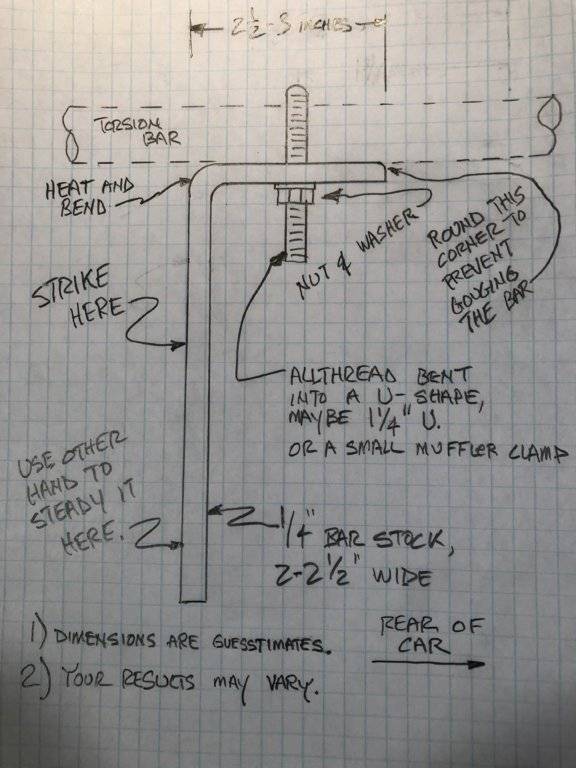 2 1/2-3 INCHES
TORSION
BAR
HEAT AND
BEND
NUT & WASHER
ROUND THIS
CORNER TO
PREVENT
GOUGING
THE BAR
STRIKE
HERE
ALLTHREAD BENT
INTO A U-SHAPE,
MAYBE 1 1/4" U.
OR A SMALL MUFFLER CLAMP
USE OTHER
HAND TO
STEADY IT
HERE.
1/4" BAR STOCK,
2-2 1/2" WIDE
1) DIMENSIONS ARE GUESSTIMATES.
2) YOUR RESULTS MAY VARY.
REAR OF
CAR